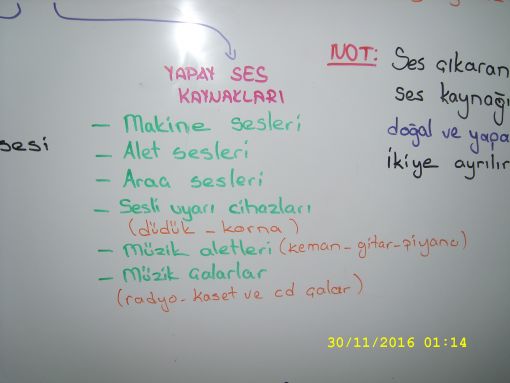 YAPAY SES
KAYNAKLARI
— Makine sesleri
— Alet sesleri
— Araç sesleri
— Sesli uyarı cihazları
(düdük - korna)
— Müzik aletleri (keman - gitar - piyano)
— Müzik çalarlar
(radyo - kaset ve cd çalar)
sesi
NOT: Ses çıkaran
ses kaynağı
doğal ve yapa
ikiye ayrılır
30/11/2016 01:14